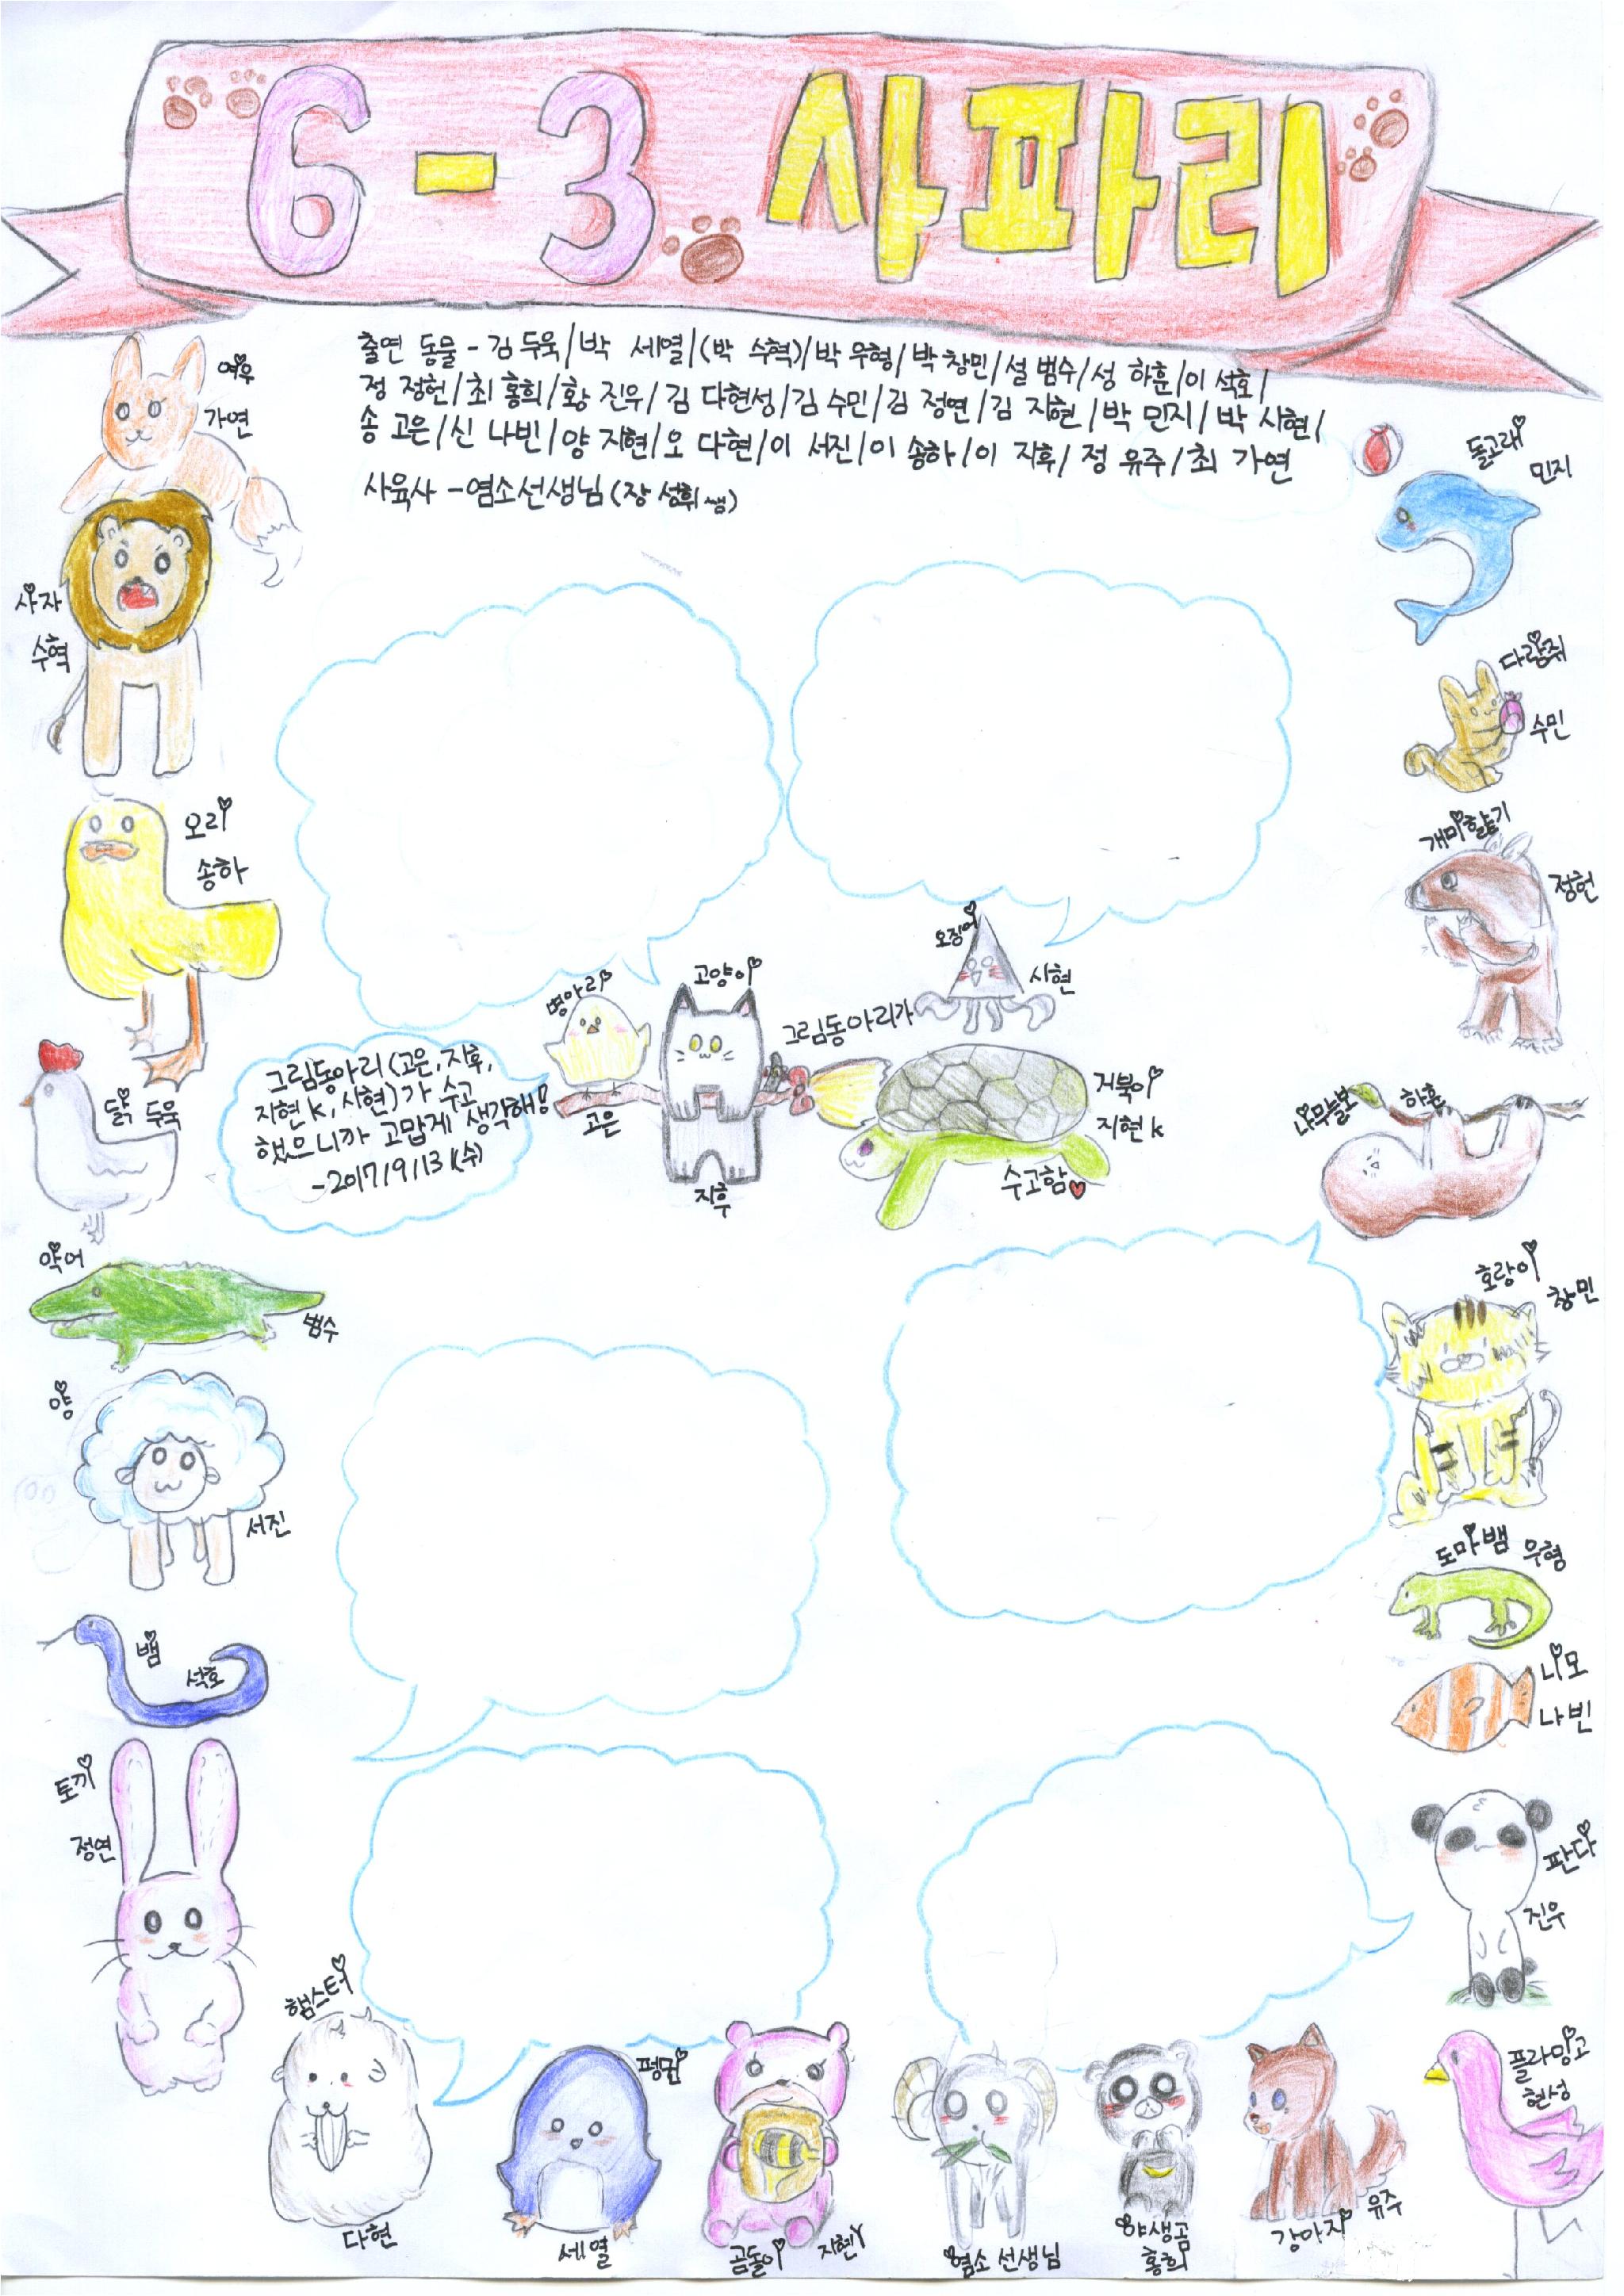 6-3 사파리
출연 동물 - 김 두욱/박 세열/(박 수혁)/박 우형/박 창민/설 범수/성 하훈/이 석호/
정 정헌/최 홍희/황 진우/김 다현성/김 수민/김 정연/김 지현/박 민지/박 시현/
송 고은/신 나빈/양 지현/오 다현/이 서진/이 송하/이 지후/정 유주/최 가연
사육사 -염소선생님(장 성휘 쌤)
여우
가연
사자
수혁
오리
송하
닭 두욱
악어
범수
양
서진
뱀
석호
토끼
정연
햄스터
다현
펭귄
세열
곰돌이
지현Y
염소 선생님
야생곰
홍희
강아지
유주
플라밍고
현성
판다
진우
니모
나빈
도마뱀 우형
호랑이
창민
나무늘보
하훈
개미핥기
정헌
다람쥐
수민
돌고래
민지
오징어
시현
병아리
고은
고양이
지후
그림동아리가
거북이
지현K
수고함♥
그림동아리(고은,지후,
지현K,시현)가 수고
했으니까 고맙게 생각해!
-2017/9/13/(수)